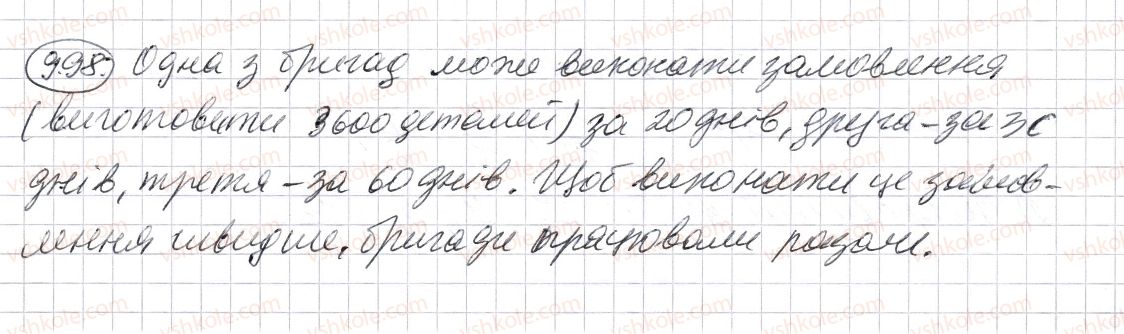 998. Одна з бригад може виконати замовлення
(виготовити 3600 деталей) за 20 днів, друга – за 30
днів, третя – за 60 днів. Щоб виконати це замов-
лення швидше, бригади працювали разом.
vshkole.com